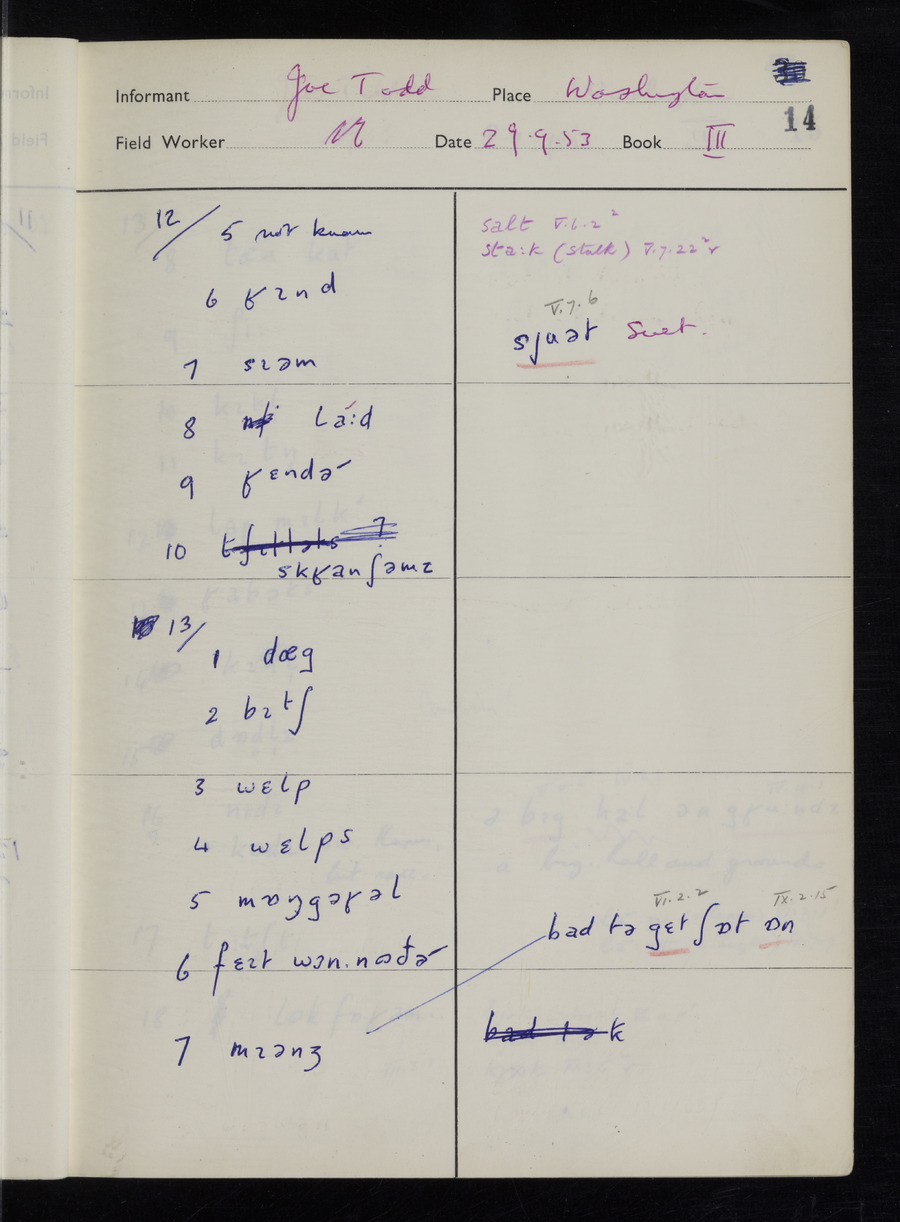 Informant Joe Todd Place Washington
14
Field Worker N Date 29.9.53 Book III
12/
5 not known
6 ɣɪnd
7 sɪəm
8 la:d
9 ɣɛndɚ
10
skɣanʃəmz
13/
1 dœg
2 bɪtʃ
3 wɛlp
4 wɛlps
5 mɒŋgəɣəl
6 fɛɪt
7 mɪənʒ
salt V.6.2²
sta:k (stalk) V.7.22²
V.7.6
sjuət suet.
VI.2.2 IX.2.15
bad tə gɛt ʃɒt ɒn